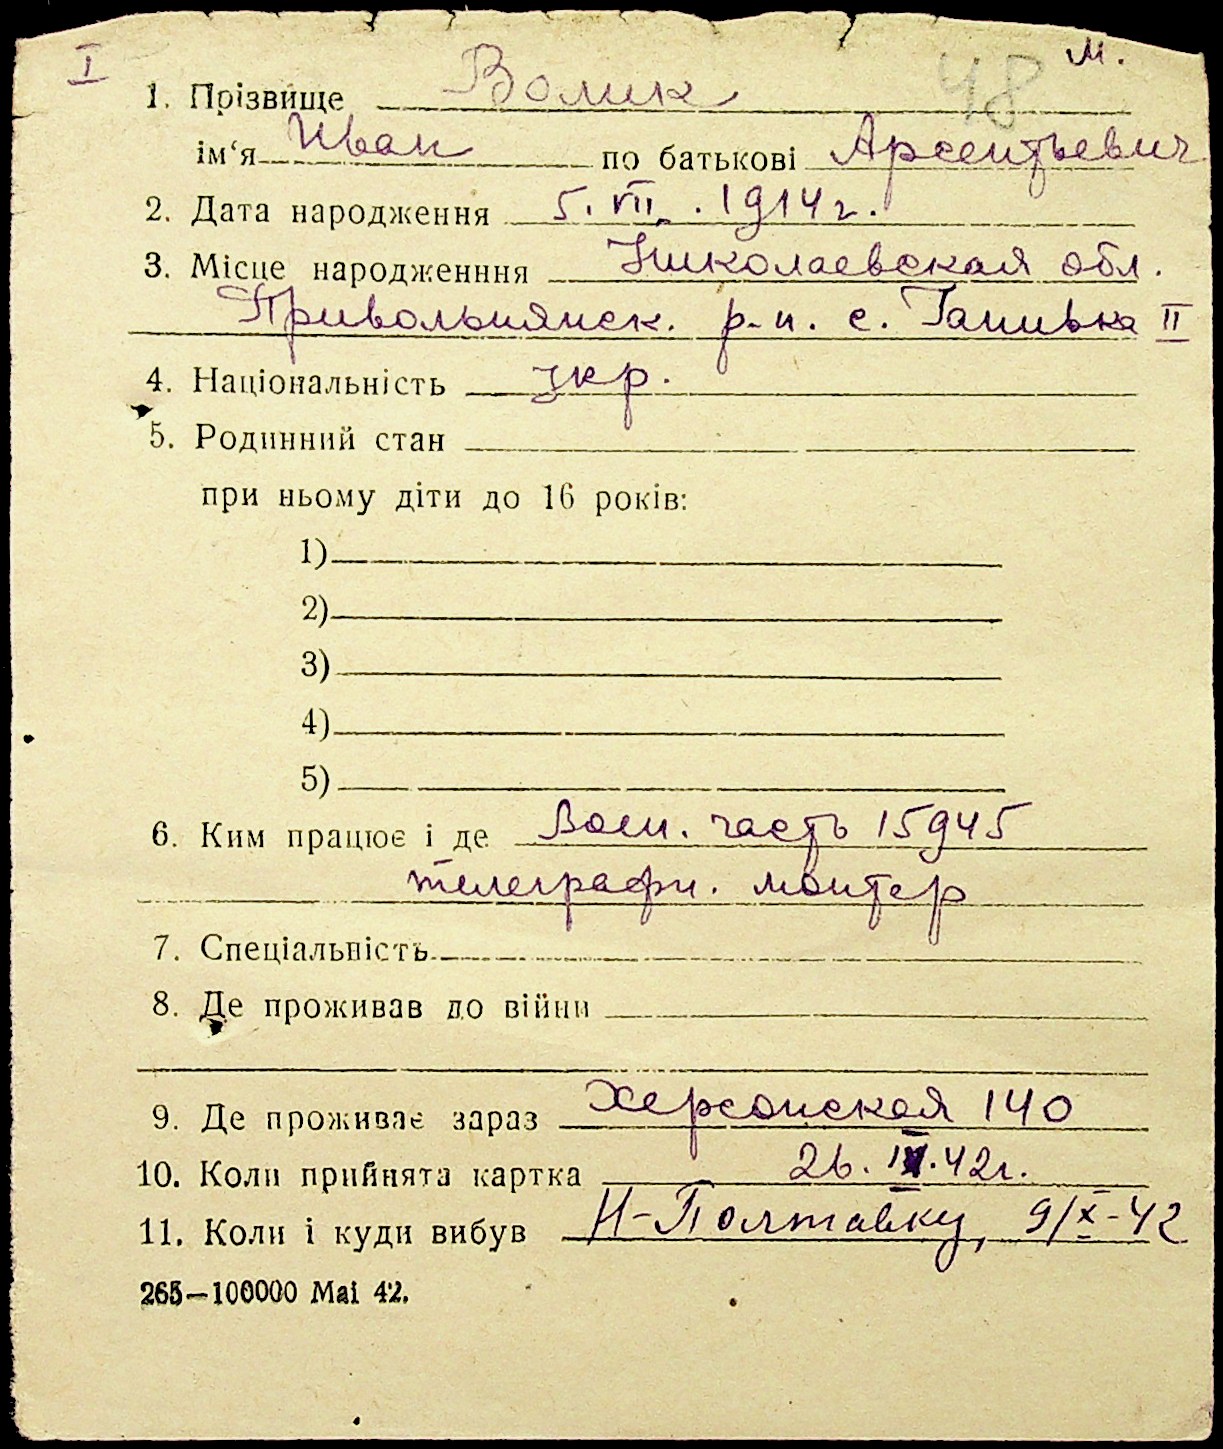 I 48 м.
1. Прізвище Волик
ім'я Иван по батькові Арсентьевич
2. Дата народження 5. VII. 1914 г.
3. Місце народженння Николаевская обл.
Привольнянск. р-н. с. Ганивка II
4. Національність укр.
5. Родинний стан
при ньому діти до 16 років:
1)
2)
3)
4)
5)
6. Ким працює і де Воен. часть 15945
телеграфн. монтер
7. Спеціальність
8. Де проживав до війни
9. Де проживає зараз Херсонская 140
10. Коли прийнята картка 26. .42г.
11. Коли і куди вибув Н-Полтавку, 9/X-42
265—100000 Mai 42.